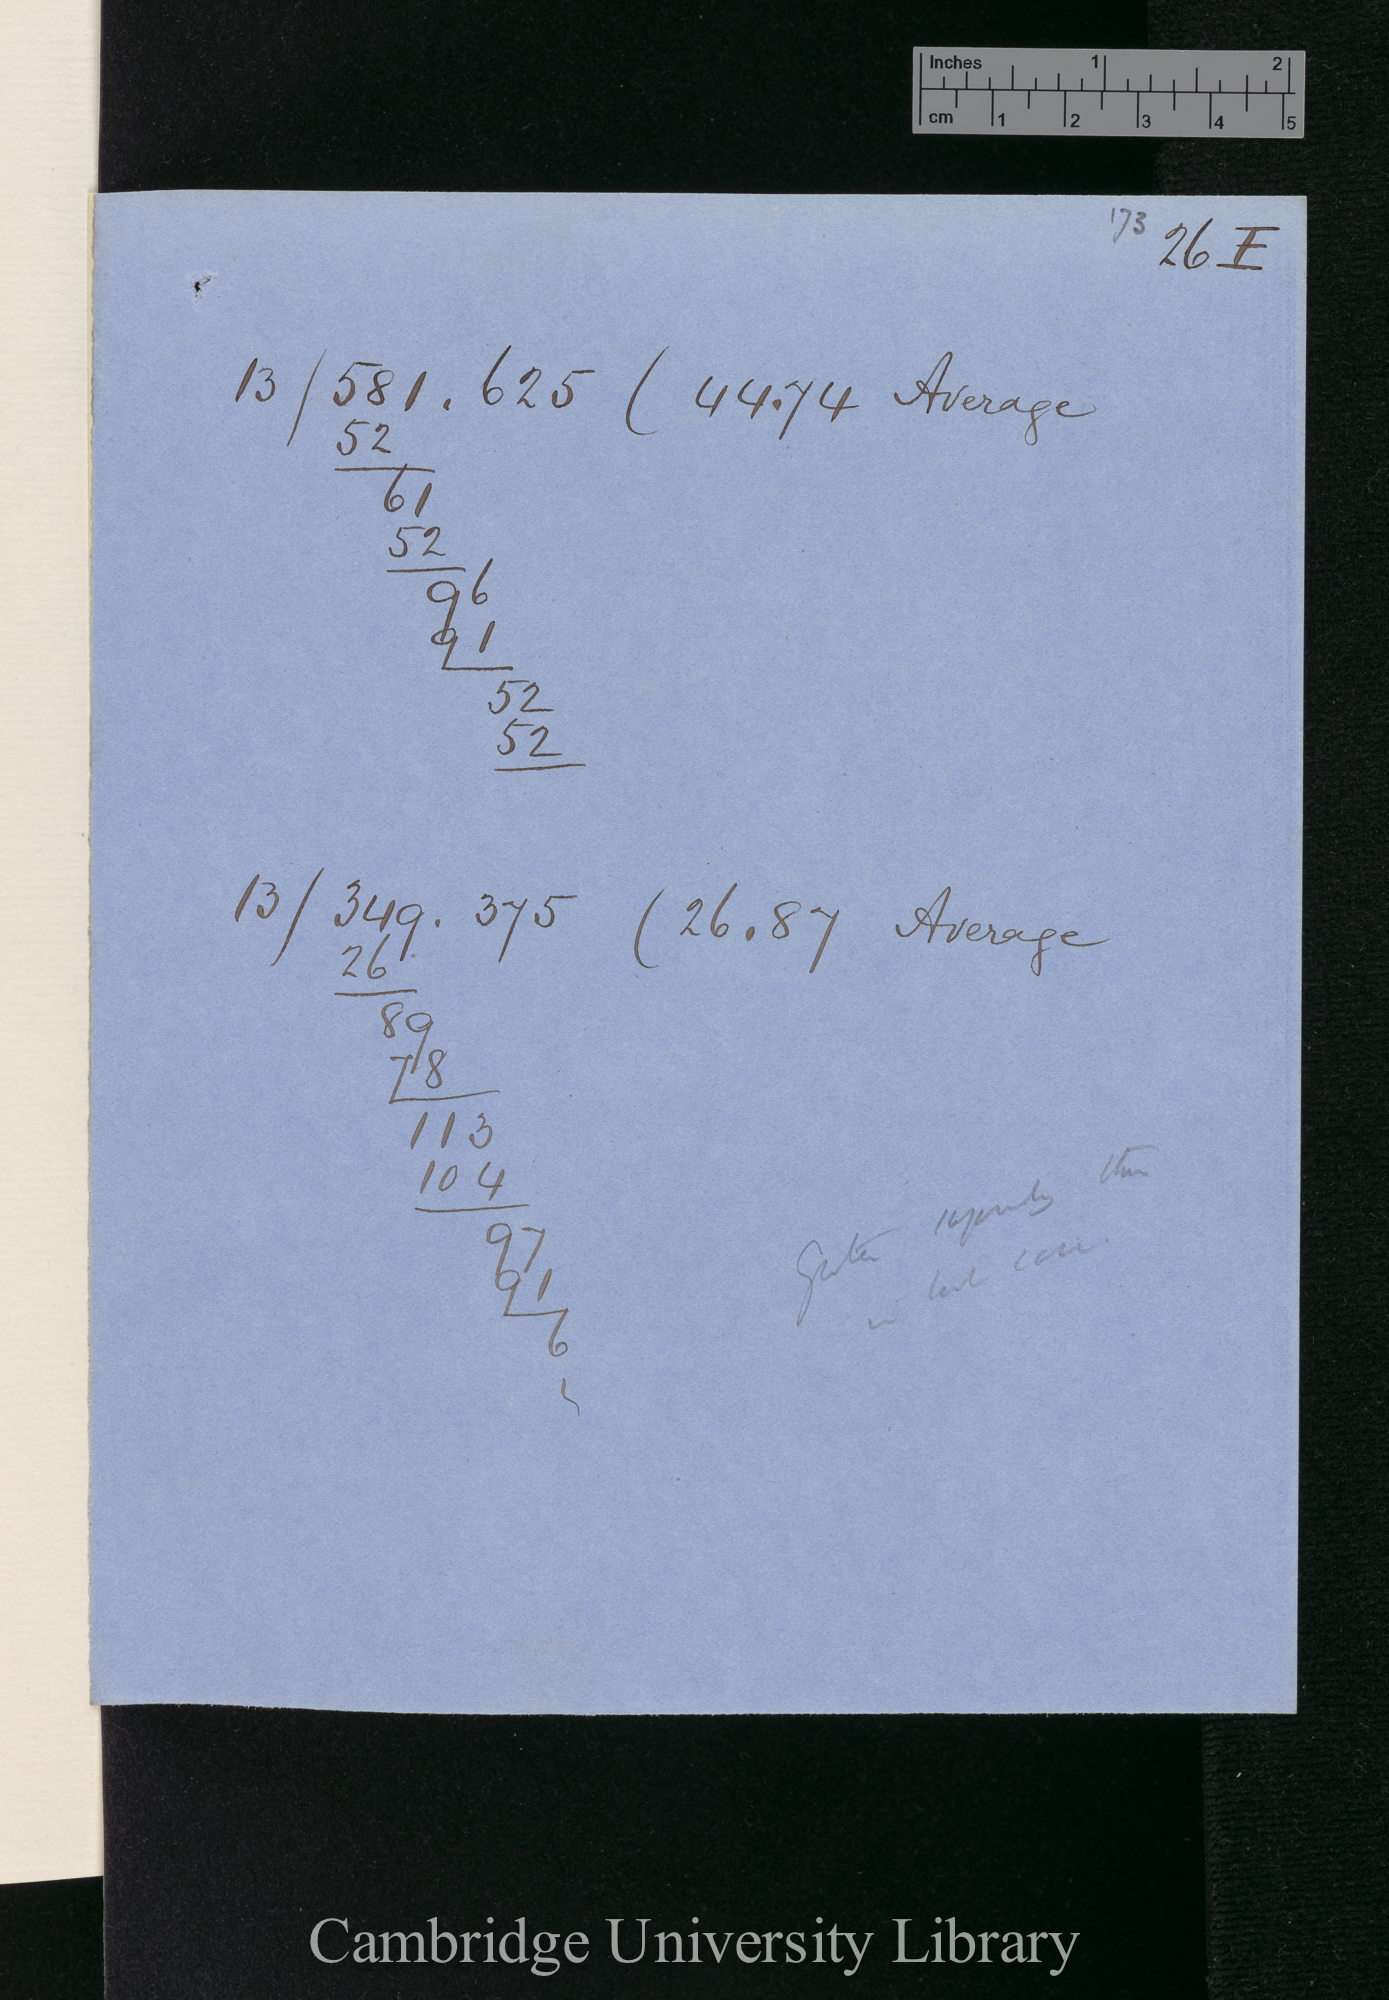 Inches 1 2
cm 1 2 3 4 5
173 26 I
13 / 581.625 ( 44.74 Average
52
61
52
96
91
52
52
13 / 349.375 ( 26.87 Average
26
89
78
113
104
97
91
6
Greater than
in last case
Cambridge University Library